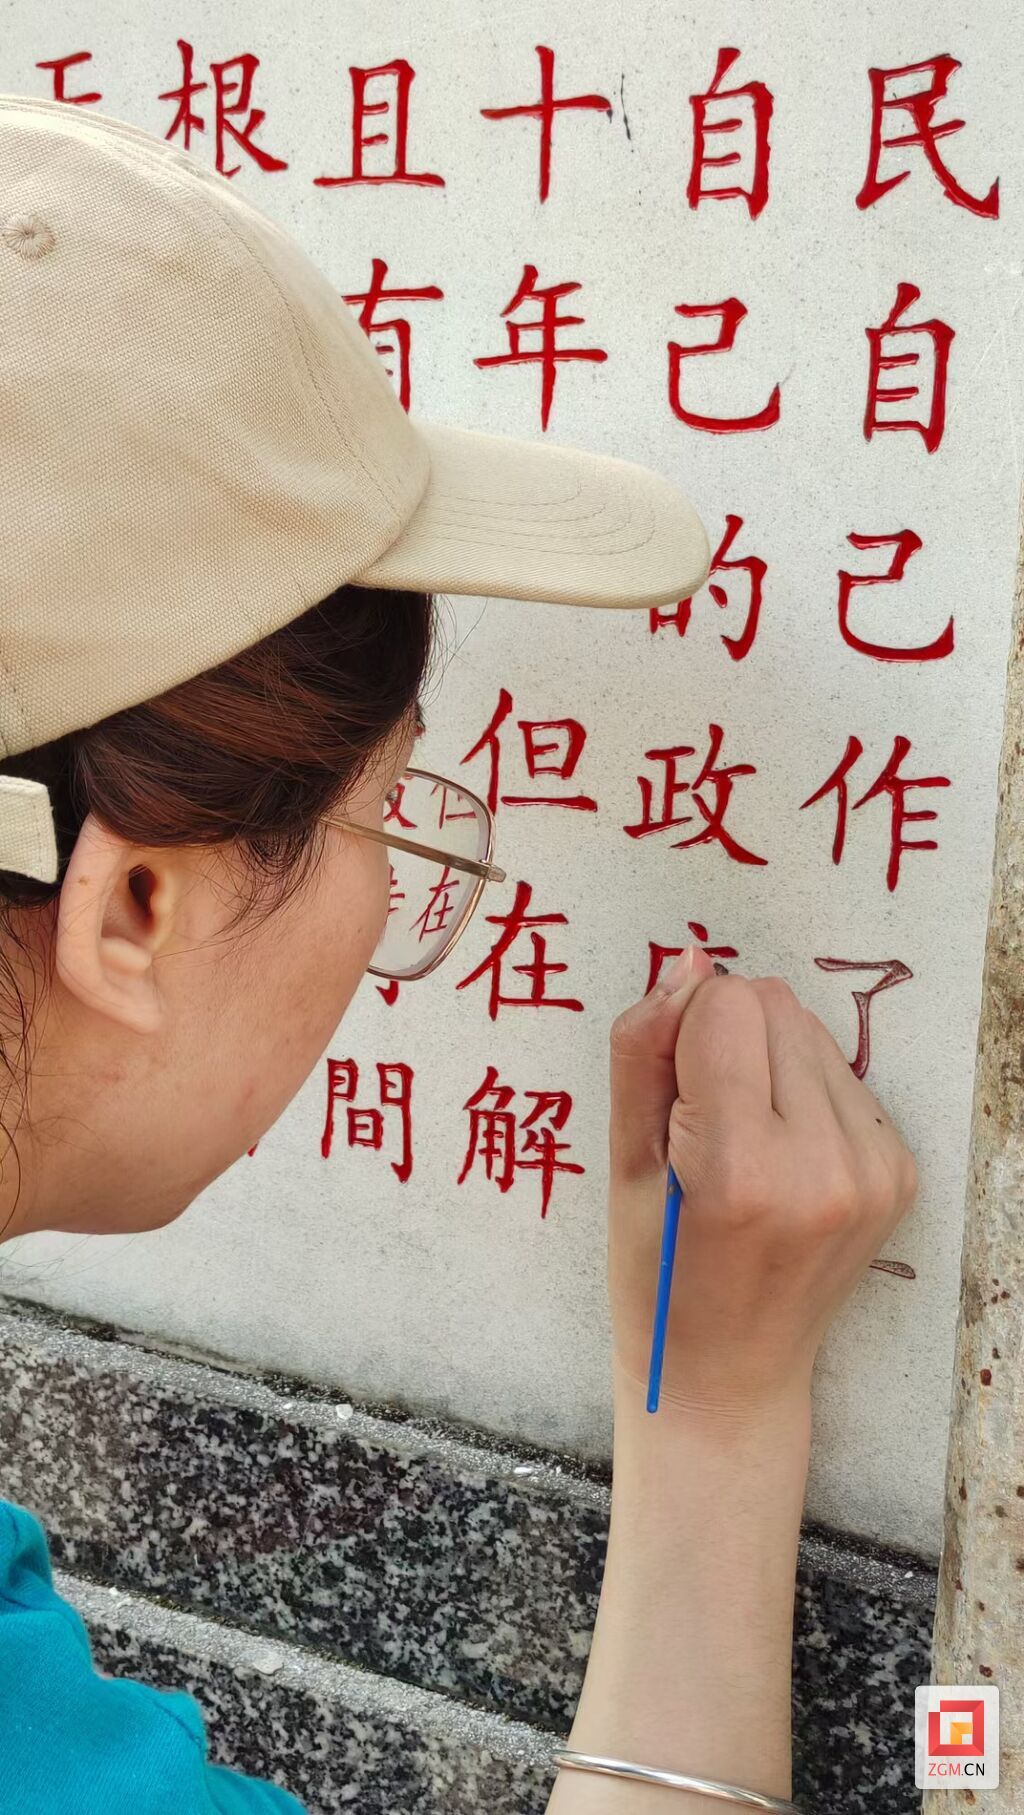 民自己作了
自己的政
十年但在解
且有間
根
ZGM.CN